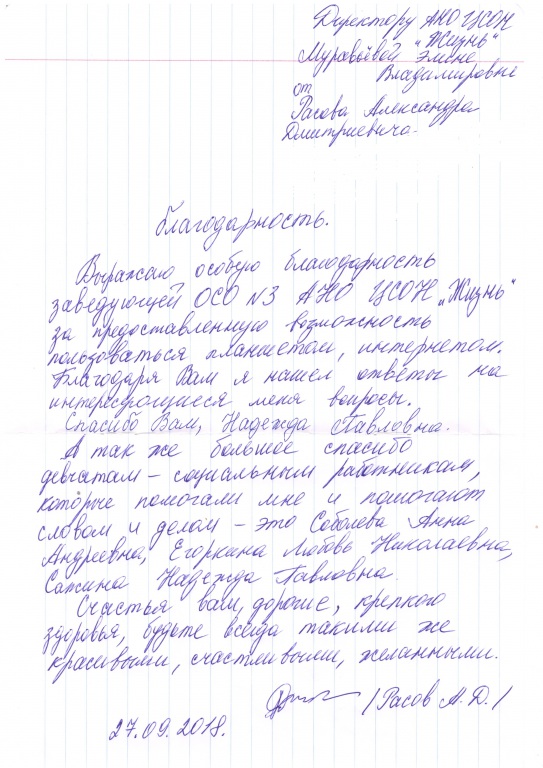 Директору АНО ЦСОН
"Жизнь"
Муравьёвой Элине
Владимировне
от
Расова Александра
Дмитриевича.
Благодарность.
Выражаю особую благодарность
заведующей ОСО №3 АНО ЦСОН „Жизнь"
за предоставленную возможность
пользоваться планшетом, интернетом.
Благодаря Вам я нашел ответы на
интересующиеся меня вопросы.
Спасибо Вам, Надежда Павловна.
А так же большое спасибо
девчатам – социальным работникам,
которые помогали мне и помогают
словом и делом – это Соболева Анна
Андреевна, Егоркина Любовь Николаевна,
Сажина Надежда Павловна.
Счастья вам, дорогие, крепкого
здоровья, будьте всегда такими же
красивыми, счастливыми, желанными.
/Расов А.Д./
27.09.2018.